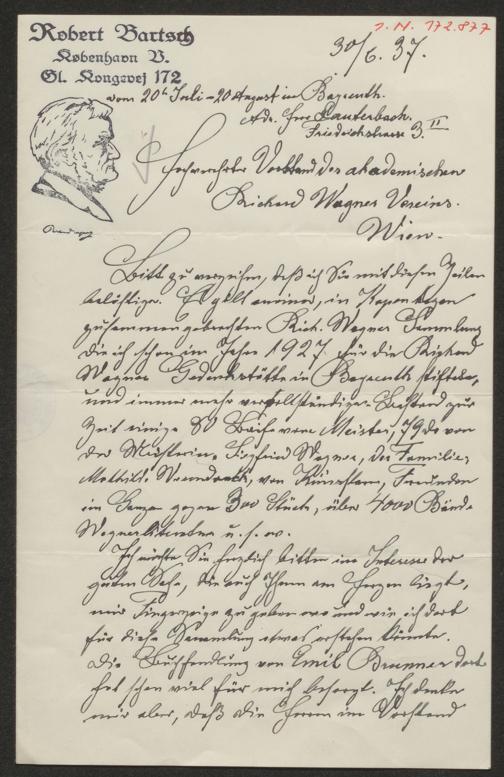 Robert Bartsch
København V.
Gl. Kongevej 172
I. N. 172.877
30/6. 37.
vom 20t Juli – 20 August in Bayreuth.
Adr. Herr Lauterbach.
Friedrichstrasse 3. II
Hochverehrter Vorstand des akademischen
Richard Wagner Vereins.
Wien.
Bitte zu verzeihen, daß ich Sie mit diesen Zeilen
belästige. Es gilt meiner, in Kopenhagen
zusammengebrachten Rich. Wagner Sammlung
die ich schon im Jahre 1927 für die Richard
Wagner Gedenkstätte in Bayreuth stiftete,
und immer mehr vervollständige. Bestand zur
Zeit einige 80 Briefe vom Meister, 79 do von
der Meisterin, Siegfried Wagner, der Familie,
Mathilde Wesendonck, von Künstlern, Freunden
im Ganzen gegen 300 Stück, über 4000 Bände
Wagnerliteratur u. s. w.
Ich möchte Sie herzlich bitten im Interesse der
guten Sache, die auch Ihnen am Herzen liegt,
mir Fingerzeige zu geben wo und wie ich dort
für diese Sammlung etwas erstehen könnte.
Die Buchhandlung von Emil Brunner dort
hat schon viel für mich besorgt. Ich denke
mir aber, daß die Herren im Vorstand